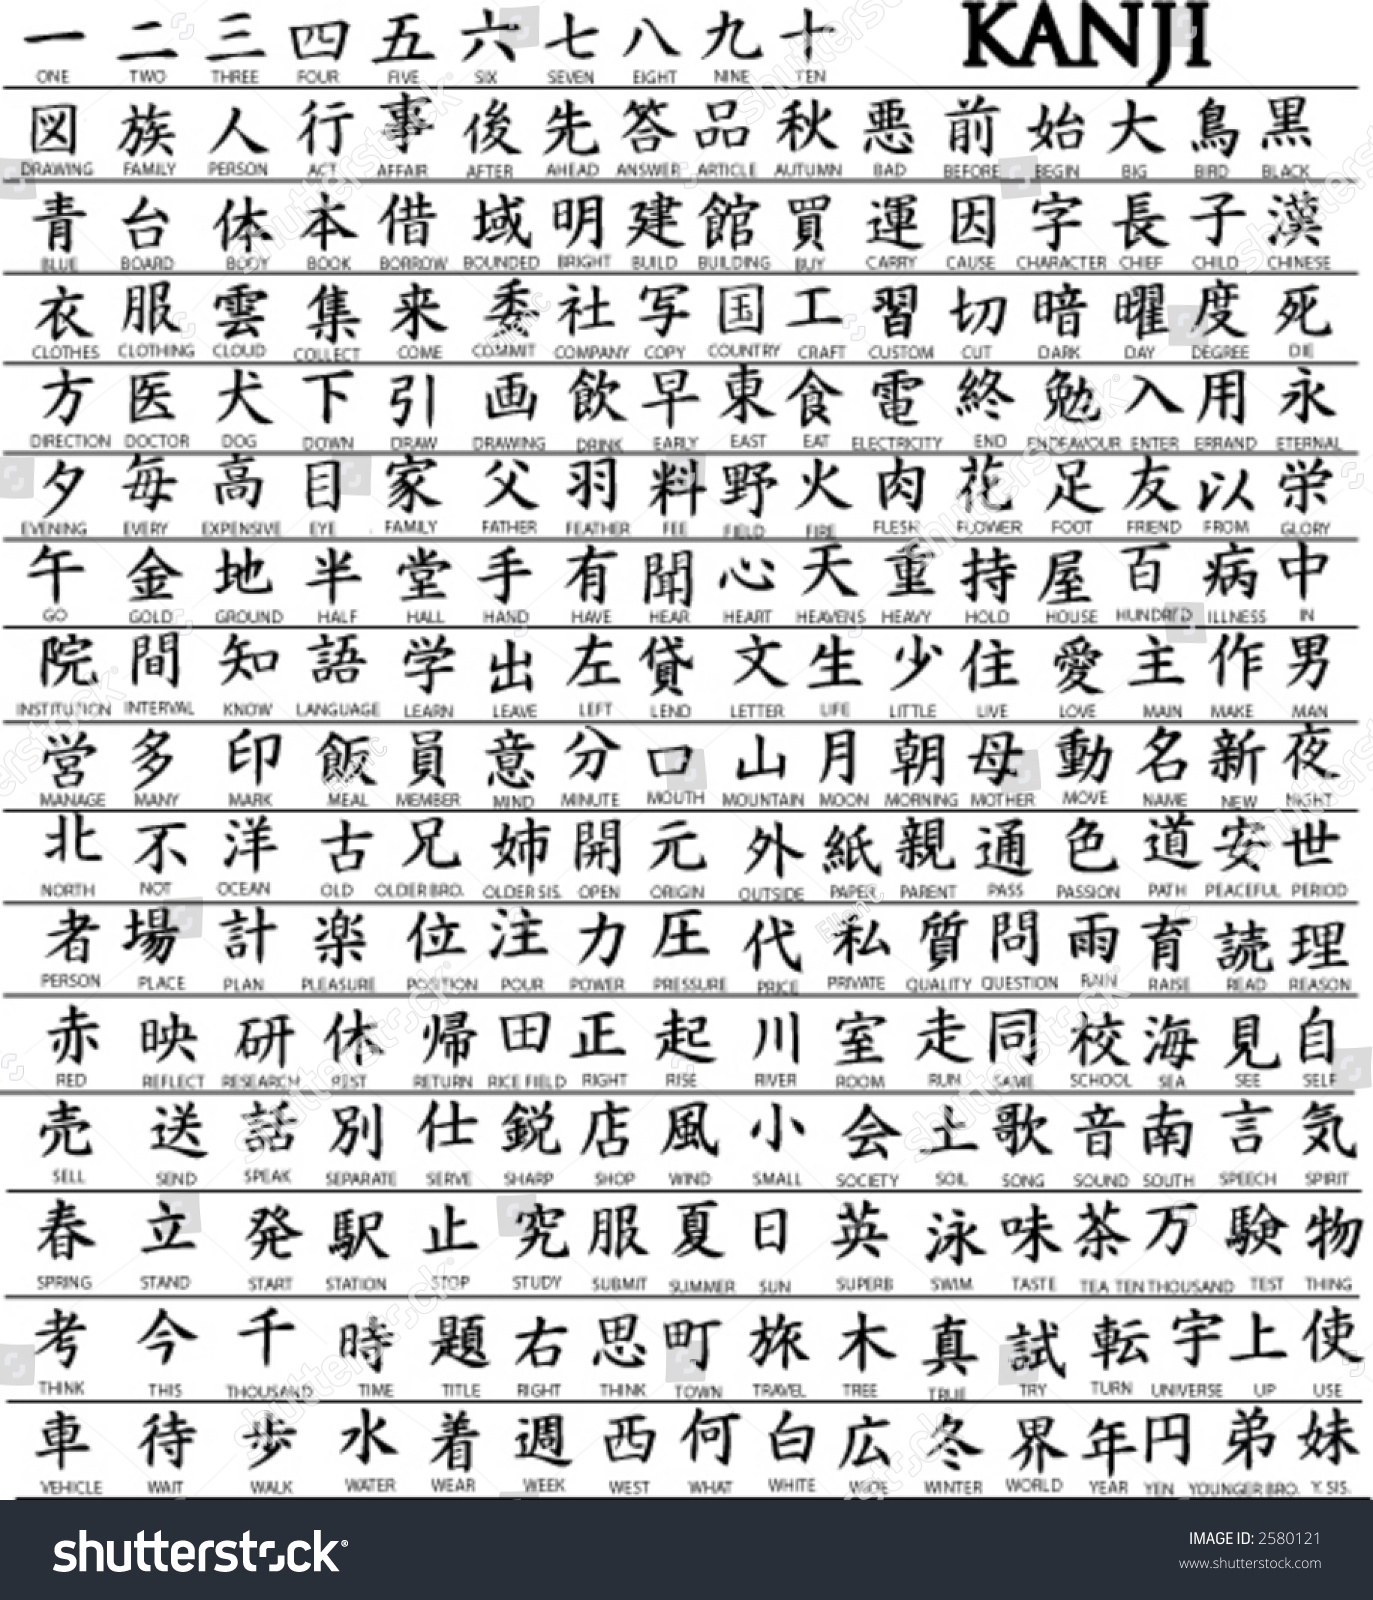 一 二 三 四 五 六 七 八 九 十 KANJI
ONE TWO THREE FOUR FIVE SIX SEVEN EIGHT NINE TEN
図 族 人 行 事 後 先 答 品 秋 悪 前 始 大 鳥 黒
DRAWING FAMILY PERSON ACT AFFAIR AFTER AHEAD ANSWER ARTICLE AUTUMN BAD BEFORE BEGIN BIG BIRD BLACK
青 台 体 本 借 域 明 建 館 買 運 因 字 長 子 漢
BLUE BOARD BODY BOOK BORROW BOUNDED BRIGHT BUILD BUILDING BUY CARRY CAUSE CHARACTER CHIEF CHILD CHINESE
衣 服 雲 集 来 委 社 写 国 工 習 切 暗 曜 度 死
CLOTHES CLOTHING CLOUD COLLECT COME COMMIT COMPANY COPY COUNTRY CRAFT CUSTOM CUT DARK DAY DEGREE DIE
方 医 犬 下 引 画 飲 早 東 食 電 終 勉 入 用 永
DIRECTION DOCTOR DOG DOWN DRAW DRAWING DRINK EARLY EAST EAT ELECTRICITY END ENDEAVOUR ENTER ERRAND ETERNAL
夕 毎 高 目 家 父 羽 料 野 火 肉 花 足 友 以 栄
EVENING EVERY EXPENSIVE EYE FAMILY FATHER FEATHER FEE FIELD FIRE FLESH FLOWER FOOT FRIEND FROM GLORY
午 金 地 半 堂 手 有 聞 心 天 重 持 屋 百 病 中
GO GOLD GROUND HALF HALL HAND HAVE HEAR HEART HEAVENS HEAVY HOLD HOUSE HUNDRED ILLNESS IN
院 間 知 語 学 出 左 貸 文 生 少 住 愛 主 作 男
INSTITUTION INTERVAL KNOW LANGUAGE LEARN LEAVE LEFT LEND LETTER LIFE LITTLE LIVE LOVE MAIN MAKE MAN
営 多 印 飯 員 意 分 口 山 月 朝 母 動 名 新 夜
MANAGE MANY MARK MEAL MEMBER MIND MINUTE MOUTH MOUNTAIN MOON MORNING MOTHER MOVE NAME NEW NIGHT
北 不 洋 古 兄 姉 開 元 外 紙 親 通 色 道 安 世
NORTH NOT OCEAN OLD OLDER BRO. OLDER SIS. OPEN ORIGIN OUTSIDE PAPER PARENT PASS PASSION PATH PEACEFUL PERIOD
者 場 計 楽 位 注 力 圧 代 私 質 問 雨 育 読 理
PERSON PLACE PLAN PLEASURE POSITION POUR POWER PRESSURE PRICE PRIVATE QUALITY QUESTION RAIN RAISE READ REASON
赤 映 研 休 帰 田 正 起 川 室 走 同 校 海 見 自
RED REFLECT RESEARCH REST RETURN RICE FIELD RIGHT RISE RIVER ROOM RUN SAME SCHOOL SEA SEE SELF
売 送 話 別 仕 鋭 店 風 小 会 土 歌 音 南 言 気
SELL SEND SPEAK SEPARATE SERVE SHARP SHOP WIND SMALL SOCIETY SOIL SONG SOUND SOUTH SPEECH SPIRIT
春 立 発 駅 止 究 服 夏 日 英 泳 味 茶 万 験 物
SPRING STAND START STATION STOP STUDY SUBMIT SUMMER SUN SUPERB SWIM TASTE TEA TEN THOUSAND TEST THING
考 今 千 時 題 右 思 町 旅 木 真 試 転 宇 上 使
THINK THIS THOUSAND TIME TITLE RIGHT THINK TOWN TRAVEL TREE TRUE TRY TURN UNIVERSE UP USE
車 待 歩 水 着 週 西 何 白 広 冬 界 年 円 弟 妹
VEHICLE WAIT WALK WATER WEAR WEEK WEST WHAT WHITE WIDE WINTER WORLD YEAR YEN YOUNGER BRO. Y. SIS.
shutterstock IMAGE ID: 2580121
www.shutterstock.com